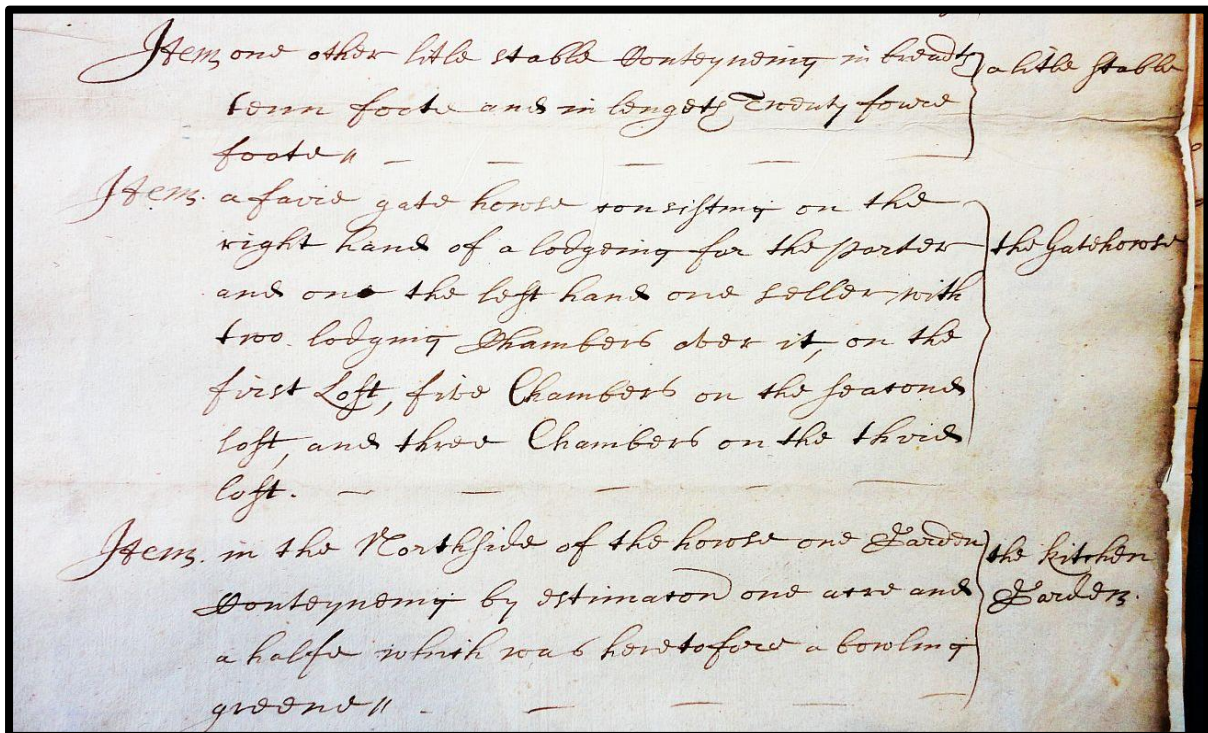 Item one other litle stable Conteyneing in breadth
tenn foote and in length Twenty fowre
foote //
a litle stable
Item. a faire gate howse consisting on the
right hand of a lodgeing for the porter
and one the left hand one seller with
two lodging Chambers over it, on the
first Loft, five Chambers on the seacond
loft, and three Chambers on the third
loft.
the Gatehowse
Item. in the Northside of the howse one Garden
Conteyneing by estimacon one acre and
a halfe which was heretofore a bowling
greene //
the kitchen
Garden.